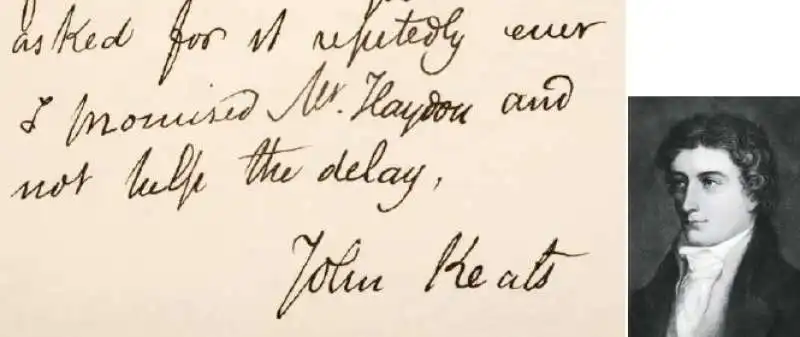 asked for it reputedly ever
I promised Mr. Haydon and
not help the delay,
John Keats